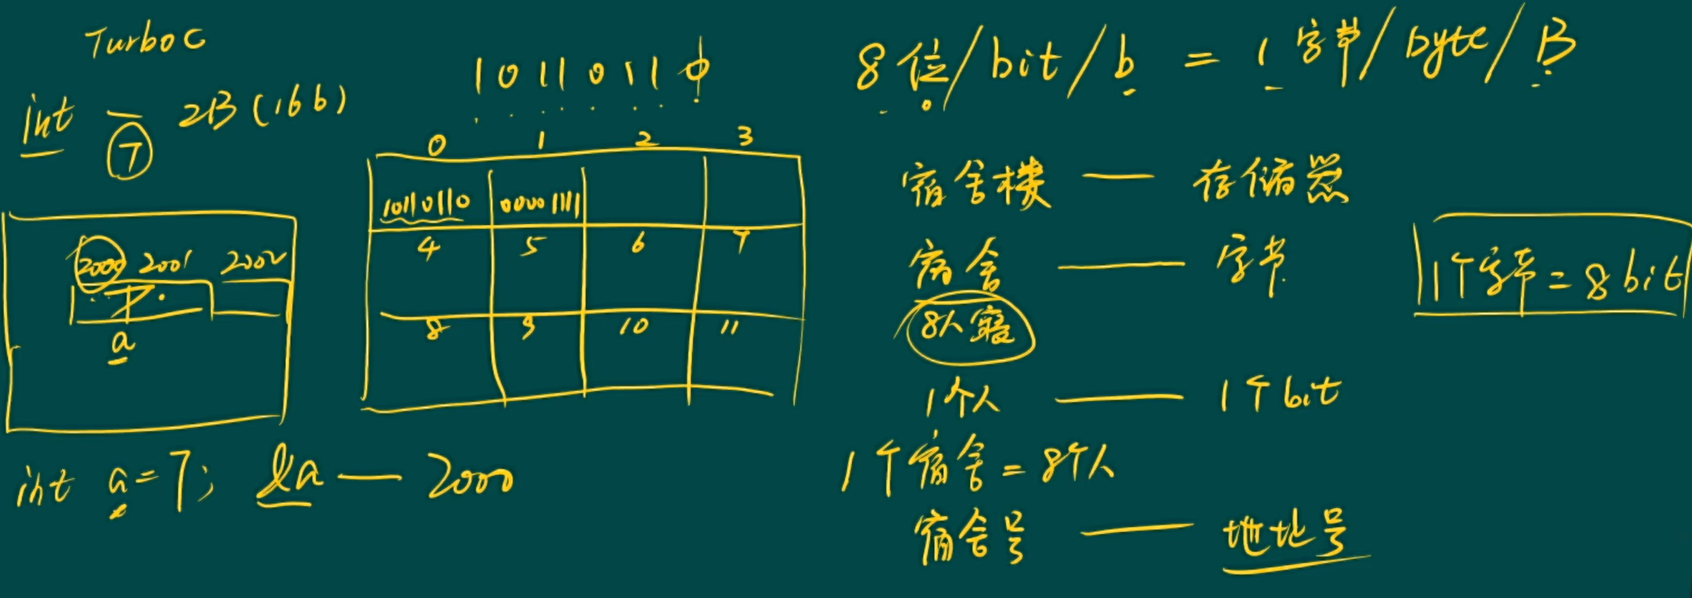 Turbo C
int 一 2B (16b)
7
2000 2001 2002
7
a
int a=7; &a — 2000
10110110
0 1 2 3
10110110 00001111
4 5 6 7
8 9 10 11
8位/bit/b = 1字节/byte/B
宿舍楼 — 存储器
宿舍 — 字节
8人寝
1个人 — 1个bit
1个宿舍=8个人
宿舍号 — 地址号
1个字节=8bit